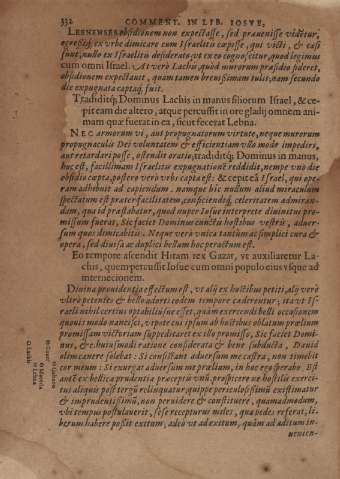 332 COMMENT. IN LIB. IOSVE,
LEBNENSES obsidionem non expectasse, sed prauenisse videtur,
egressiq; ex vrbe dimicare cum Israelitis capisse, qui victi, & casi
sunt, nullo ex Israelitis desiderato, vt ex eo cognoscitur, quod legimus
cum omni Israel. At verò Lachis, quòd murorum præsidio sideret,
obsidionem expectauit, quam tamen breuissimam tulit, nam secundo
die expugnata captaq; fuit.
Tradiditq; Dominus Lachis in manus filiorum Israel, & ce-
pit eam die altero, atque percussit in ore gladij omnem ani-
mam quæ fuerat in ea, sicut fecerat Lebna.
NEC armorum vi, aut propugnatorum virtute, neque murorum
propugnacula Dei voluntatem & efficientiam vllo modo impediri,
aut retardari posse, ostendit oratio, tradiditq; Dominus in manus,
hoc est, facillimam Israelitis expugnationem reddidit, nempe vno die
obsidis capta, postero verò vrbs capta est: & cepit eã Israel, qui ope-
ram adhibuit ad capiendum. namque hic nullum aliud miraculum
spectatum est præter facilitatem, conficiendiq; celeritatem admiran-
dam, qua id præstabatur, quod nuper Iosue interprete diuinitus pro-
missum fuerat, Sic faciet Dominus cunctis hostibus vestris, aduer-
sum quos dimicabitis. Neque verò vnica tantùm ac simplici cura &
opera, sed diuisa ac duplici bellum hoc peractum est.
Eo tempore ascendit Hiram rex Gazar, vt auxiliaretur La-
chis, quem percussit Iosue cum omni populo eius vsque ad
internecionem.
Diuina prouidentia effectum est, vt alij ex hostibus petiti, alij verò
vltrò petentes & bello adorti eodem tempore caderentur; ita vt Is-
raeli nihil certius optabiliusue esset, quàm exercendi belli occasionem
quouis modo nancisci, vtpote cui ipsum ab hostibus oblatum prælium
promissam victoriam suppeditaret ex illo promisso, Sic faciet Domi-
nus, & c. huiusmodi ratione considerata & bene subducta, Dauid
olim canere solebat: Si consistant aduersum me castra, non timebit
cor meum: Si exurgat aduersum me prælium, in hoc ego sperabo. Est
autẽ ex bellica prudentia præcepta viri, prospicere ne hostilis exerci-
tus aliquis post tergũ relinquatur, quippe periculosissimũ existimatur
& imprudentissimũ, non prouidere & constituere, quamadmodum,
vbi tempus postulauerit, sese recepturus miles, qua pedes referat, li-
berum habere possit exitum, adeò vt ad exitum, quàm ad aditum in-
uenien-